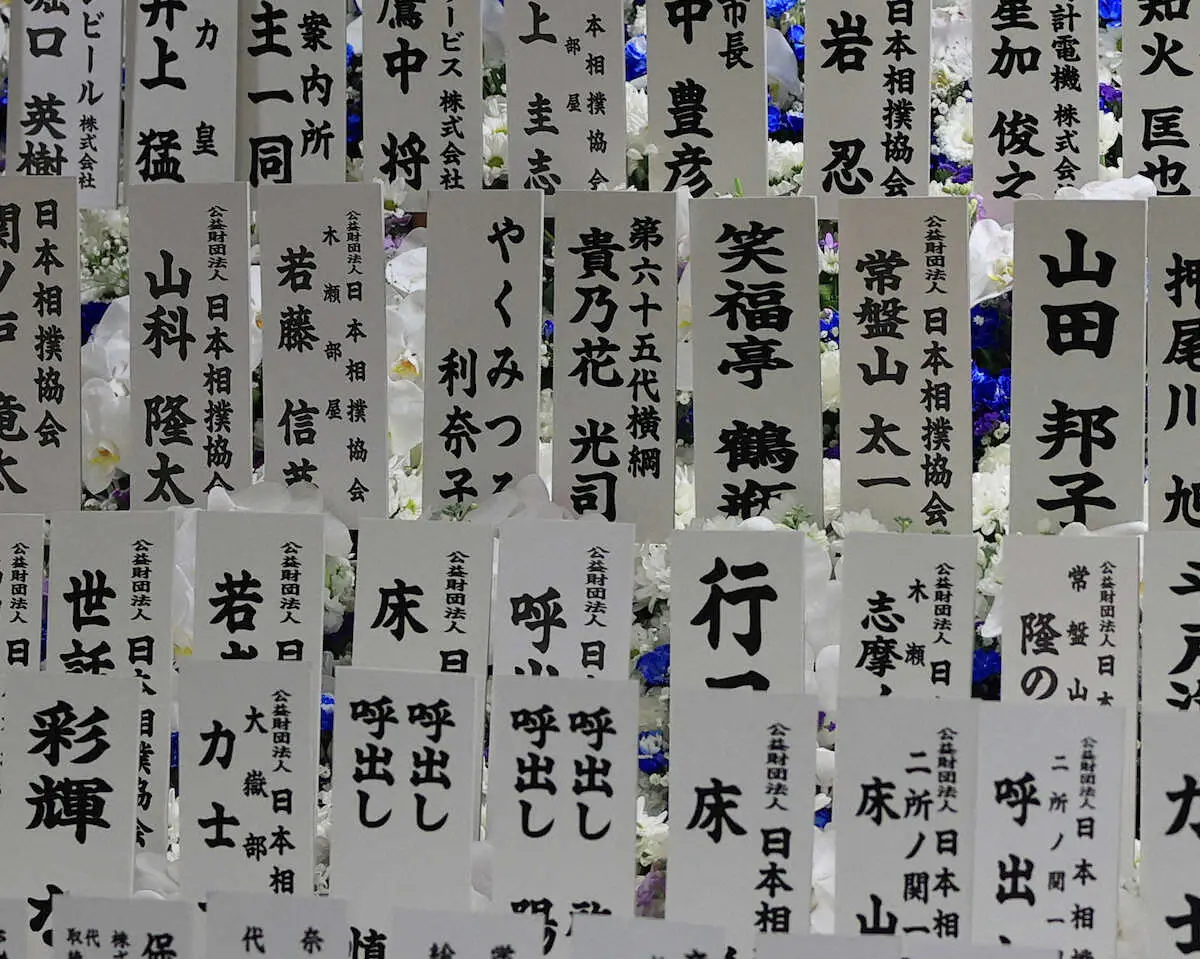 ビール 株式会社
堀口 英樹
力皇
井上 猛
案内所
主一同
ービス 株式会社
鷹中 将
本相撲協会
部屋
上 圭志
市長
中 豊彦
日本相撲協会
岩 忍
計電機 株式会社
星加 俊之
知火 匡也
日本相撲協会
関ノ戸 竜太
公益財団法人 日本相撲協会
山科 隆太
公益財団法人 日本相撲協会
木瀬部屋
若藤 信英
やくみつる
利奈子
第六十五代横綱
貴乃花 光司
笑福亭 鶴瓶
公益財団法人 日本相撲協会
常盤山 太一
山田 邦子
押尾川 旭
公益財団法人 日
公益財団法人 日本相撲協会
世話
公益財団法人 日
若
公益財団法人 日
床
公益財団法人 日
呼出
行
公益財団法人 日
木瀬
志摩ノ
公益財団法人 日本
常盤山
隆の
彩輝
公益財団法人 日本相
大嶽部
力士
呼出し
呼出し
呼出し
呼出し
公益財団法人 日本相
床
公益財団法人 日本相
二所ノ関一
床山
公益財団法人 日本相撲
二所ノ関一
呼出
力士
保
株式
代
奈
代
慎